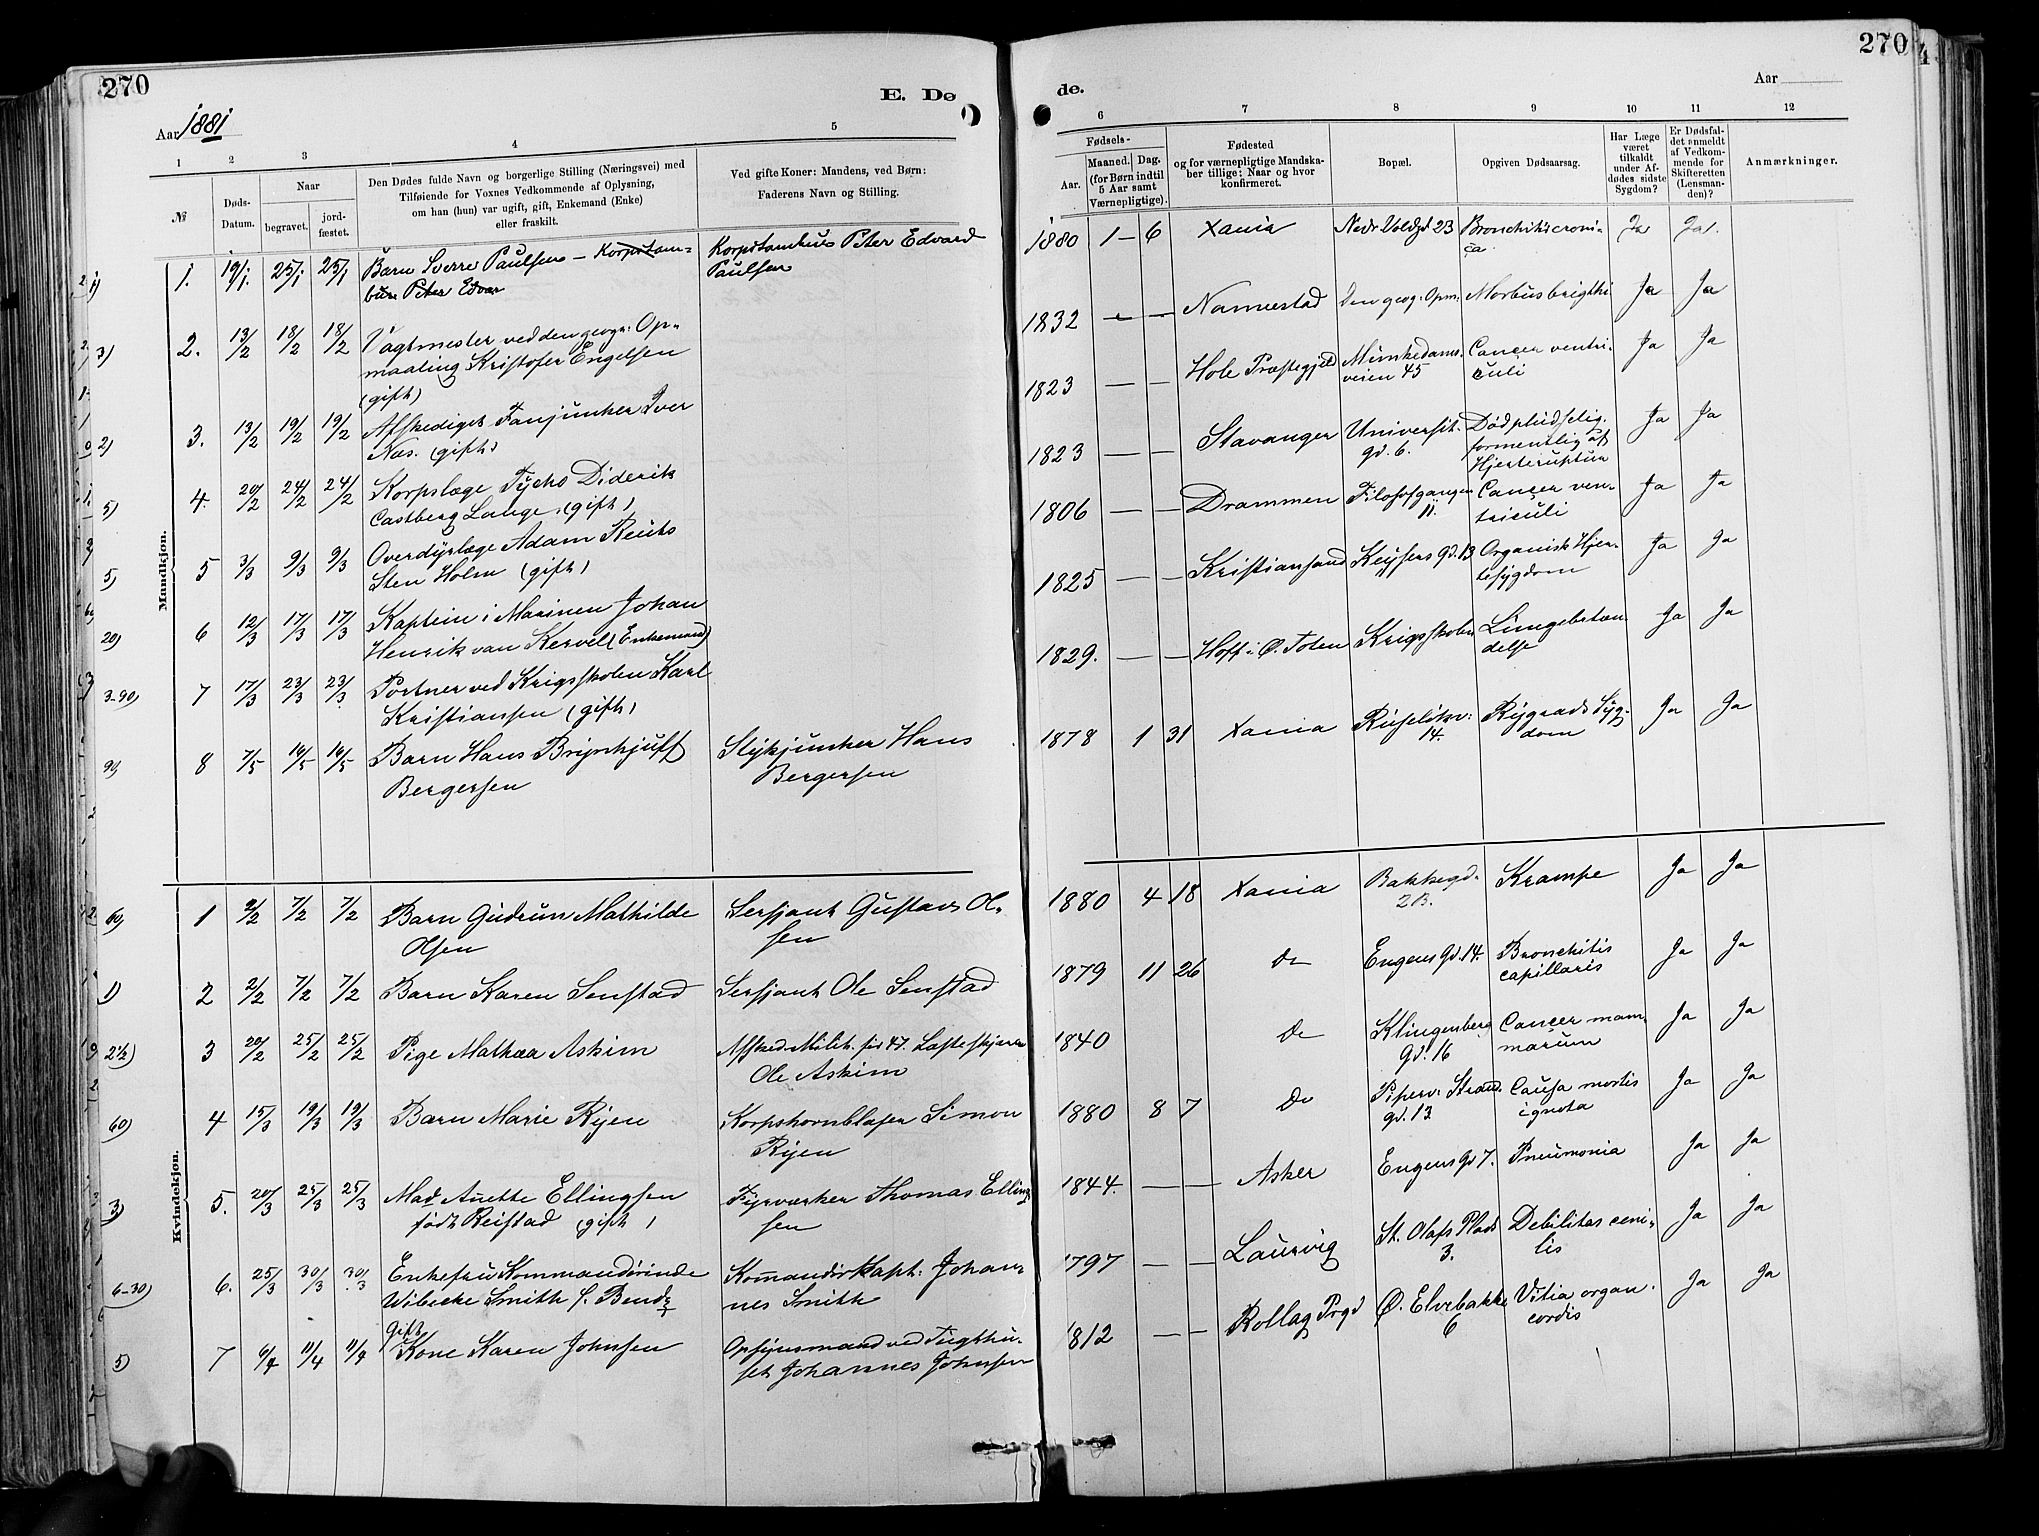 270
E. Dø
Aar 1881
1 2 3 4 5
№
Døds-
Datum.
Naar
begravet.
jord-
fæstet.
Den Dødes fulde Navn og borgerlige Stilling (Næringsvei) med
Tilføiende for Voxnes Vedkommende af Oplysning,
om han (hun) var ugift, gift, Enkemand (Enke)
eller fraskilt.
Ved gifte Koner: Mandens, ved Børn:
Faderens Navn og Stilling.
Mandkjøn.
1. 19/1. 25/1 25/1 Barn Sverre Paulsen – Korpstam-
bur Peter Edvar
Korpstambur Peter Edvard
Paulsen
2. 13/2 18/2 18/2 Vagtmester ved den geogr: Op-
maaling Kristofer Engelsen
(gift)
3. 13/2 19/2 19/2 Afskediget Fanjunker Iver
Næs. (gift)
4. 20/2 24/2 24/2 Korpslæge Tycho Diderik
Castberg Lange. (gift)
5 3/3 9/3 9/3 Overdyrlæge Adam Reutz
Sten Holm (gift)
6 12/3 17/3 17/3 Kaptein i Marinen Johan
Henrik van Kervel (Enkemand)
7 17/3 23/3 23/3 Portner ved Krigsskolen Karl
Kristiansen (gift)
8 7/5 16/5 16/5 Barn Hans Brynhjulf
Bergersen
Stykjunker Hans
Bergersen
Kvindekjøn.
1 2/2 7/2 7/2 Barn Gudrun Mathilde
Olsen
Sersjant Gustav Ol-
sen
2 2/2 7/2 7/2 Barn Karen Senstad
Sersjant Ole Senstad
3 20/2 25/2 25/2 Pige Mathea Askim
Ole Askim
4 15/3 19/3 19/3 Barn Marie Ryen
Korpshornblaser Simon
Ryen
5. 20/3 25/3 25/3 Mad Anette Ellingsen
født Reistad (gift)
Fyrværker Thomas Elling
sen
6. 25/3 30/3 30/3 Enkefru Kommandørinde
Wibecke Smith f. Bendz
Kommandørkapt: Johan-
nes Smith
7 6/4 11/4 11/4 Gift
Kone Karen Johnsen
Opsynsmand ved Tugthu-
set Johannes Johnsen
270
de.
Aar
6 7 8 9 10 11 12
Fødsels-
Aar.
Maaned. Dag.
(for Børn indtil
5 Aar samt
Værnepligtige).
Fødested
og for værnepligtige Mandska-
ber tillige: Naar og hvor
konfirmeret.
Bopæl.
Opgiven Dødsaarsag.
Har Læge
været
tilkaldt
under Af-
dødes sidste
Sygdom?
Er Dødsfal-
det anmeldt
af Vedkom-
mende for
Skifteretten
(Lensman-
den)?
Anmærkninger.
1880 1 – 6 Xania Nedr Voldgd 23 Bronchitis croni-
ca Ja Ja.
1832 – – Namestad Den geog: Opm: Morbus brigthi Ja Ja
1823 – – Hole Præstegjeld Munkedams-
veien 45 Cancer ventri-
culi Ja Ja
1823 – – Stavanger Universit.
gd. 6. Død pludselig.
formentlig af
Hjerteruptur Ja Ja
1806 – – Drammen Filosofgangen
11. Cancer ven-
triculi Ja Ja
1825 – – Kristiansand Keysers gd. 13 Organisk Hjer-
tesygdom Ja Ja
1829. – – Hoff i Ø. Toten Krigsskolen Lungebetæn-
delse Ja Ja
1878 1 31 Xania Ruseløkv:
14. Rygrads Syg-
dom Ja Ja
1880 4 18 Xania Bakkegd.
2B. Krampe Ja Ja
1879 11 26 do Engens Gd. 14. Bronchitis
capillaris Ja Ja
1840 do Klingenberg
Gd. 16 Cancer mam-
marum Ja Ja
1880 8 7 Do Piperv: Strand
gd. 13 Causa mortis
ignota Ja Ja
1844. – – Asker Engens Gd 7. Pneumonia Ja Ja
1797 – – Laurvig St. Olafs Plads
3. Debilitas ceni-
lis Ja Ja
1812 – – Rollag Prgd Ø. Elvebakke
6 Vitia organ.
cordis Ja Ja